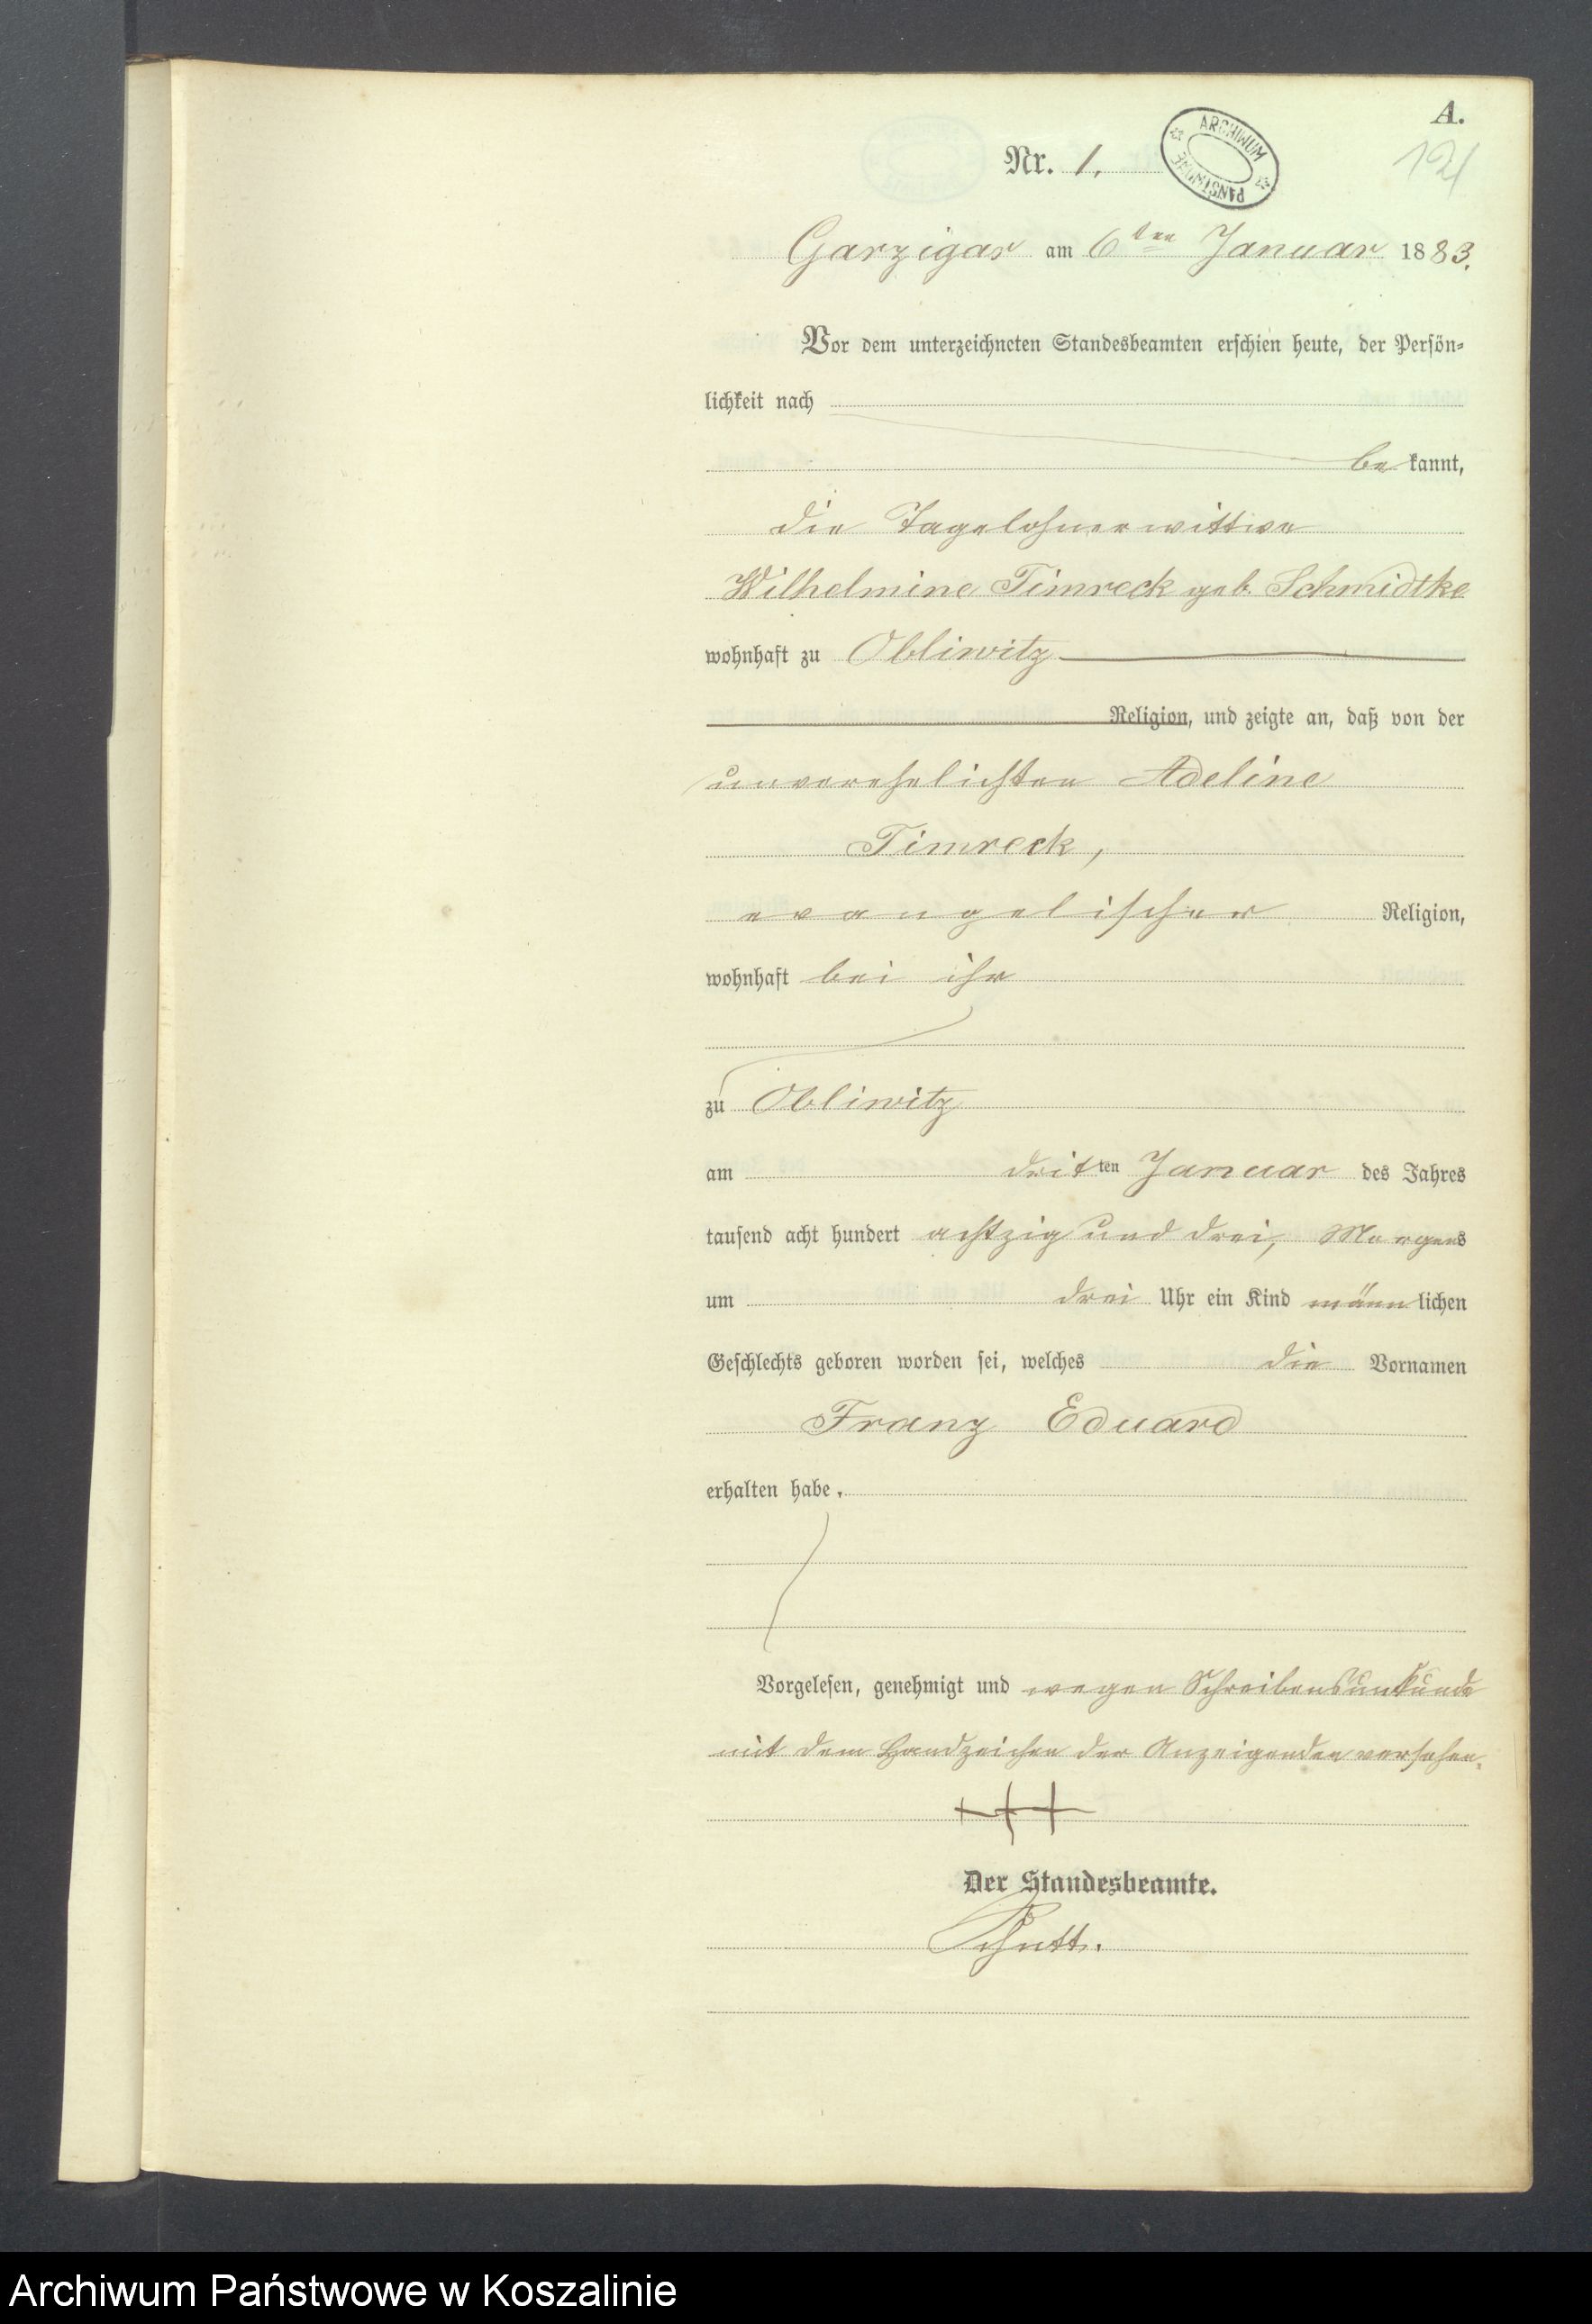 A.
Nr. 1.
ARCHIWUM PAŃSTWOWE
121
Garzigar am 6ten Januar 1883.
Vor dem unterzeichneten Standesbeamten erschien heute, der Persön-
lichkeit nach
be kannt,
die Tagelohnerwittwe
Wilhelmine Timreck geb. Schmidtke
wohnhaft zu Obliwitz
Religion, und zeigte an, daß von der
unverehelichten Adeline
Timreck,
evangelischer Religion,
wohnhaft bei ihr
zu Obliwitz
am dritten Januar des Jahres
tausend acht hundert achtzig und drei, Morgens
um drei Uhr ein Kind männlichen
Geschlechts geboren worden sei, welches die Vornamen
Franz Eduard
erhalten habe.
Vorgelesen, genehmigt und wegen Schreibensunkunde
mit dem Handzeichen der Anzeigenden versehen.
+++
Der Standesbeamte.
Archiwum Państwowe w Koszalinie